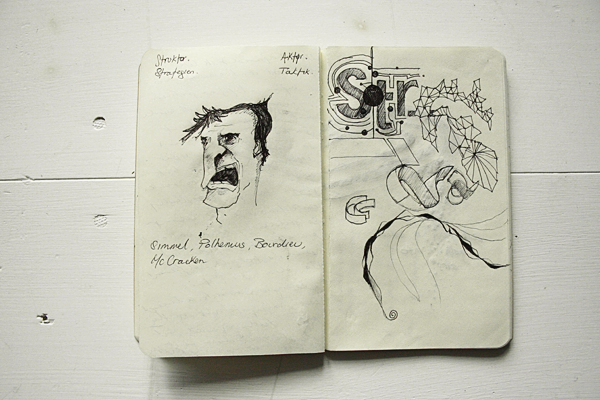 Struktør.
Strategien
Aktør.
Taktik.
Simmel, Polhemus, Bourdieu,
McCracken
Str